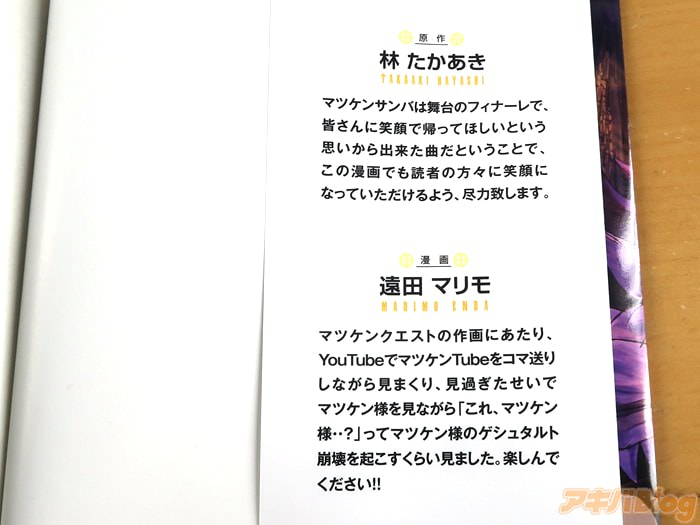 原作
林 たかあき
TAKAAKI HAYASHI
マツケンサンバは舞台のフィナーレで、
皆さんに笑顔で帰ってほしいという
思いから出来た曲だということで、
この漫画でも読者の方々に笑顔に
なっていただけるよう、尽力致します。
漫画
遠田 マリモ
MARIMO ENDA
マツケンクエストの作画にあたり、
YouTubeでマツケンTubeをコマ送り
しながら見まくり、見過ぎたせいで
マツケン様を見ながら「これ、マツケン
様‥？」ってマツケン様のゲシュタルト
崩壊を起こすくらい見ました。楽しんで
ください!!
アキバBlog